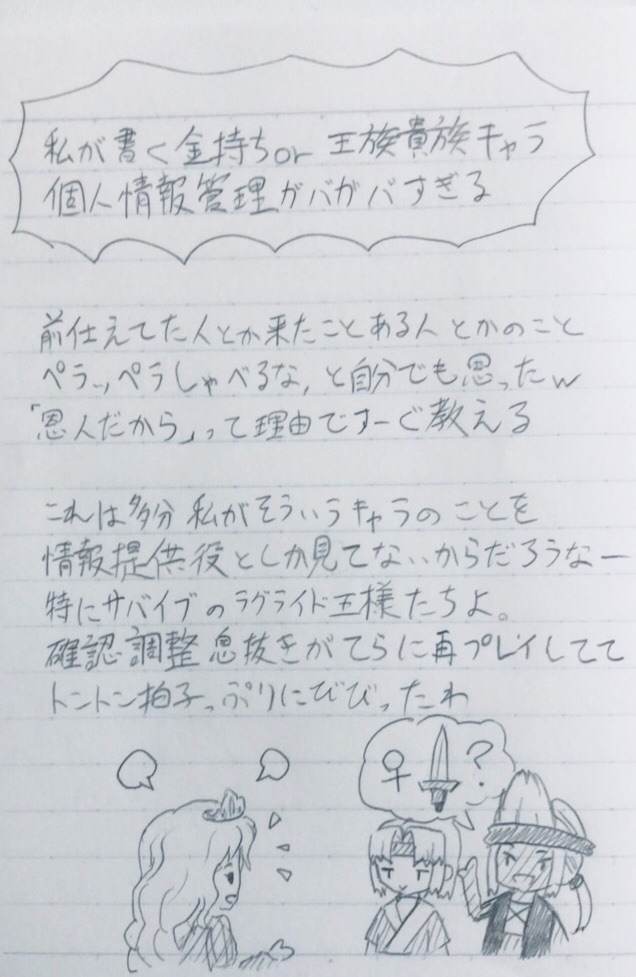 私が書く金持ちor王族貴族キャラ
個人情報管理がバガバすぎる
前仕えてた人とか来たことある人とかのこと
ペラッペラしゃべるな、と自分でも思ったw
「恩人だから」って理由ですーぐ教える
これは多分私がそういうキャラのことを
情報提供役としか見てないからだろうなー
特にサバイブのラグライド王様たちよ。
確認調整息抜きがてらに再プレイしてて
トントン拍子っぷりにびびったわ
♀ ?